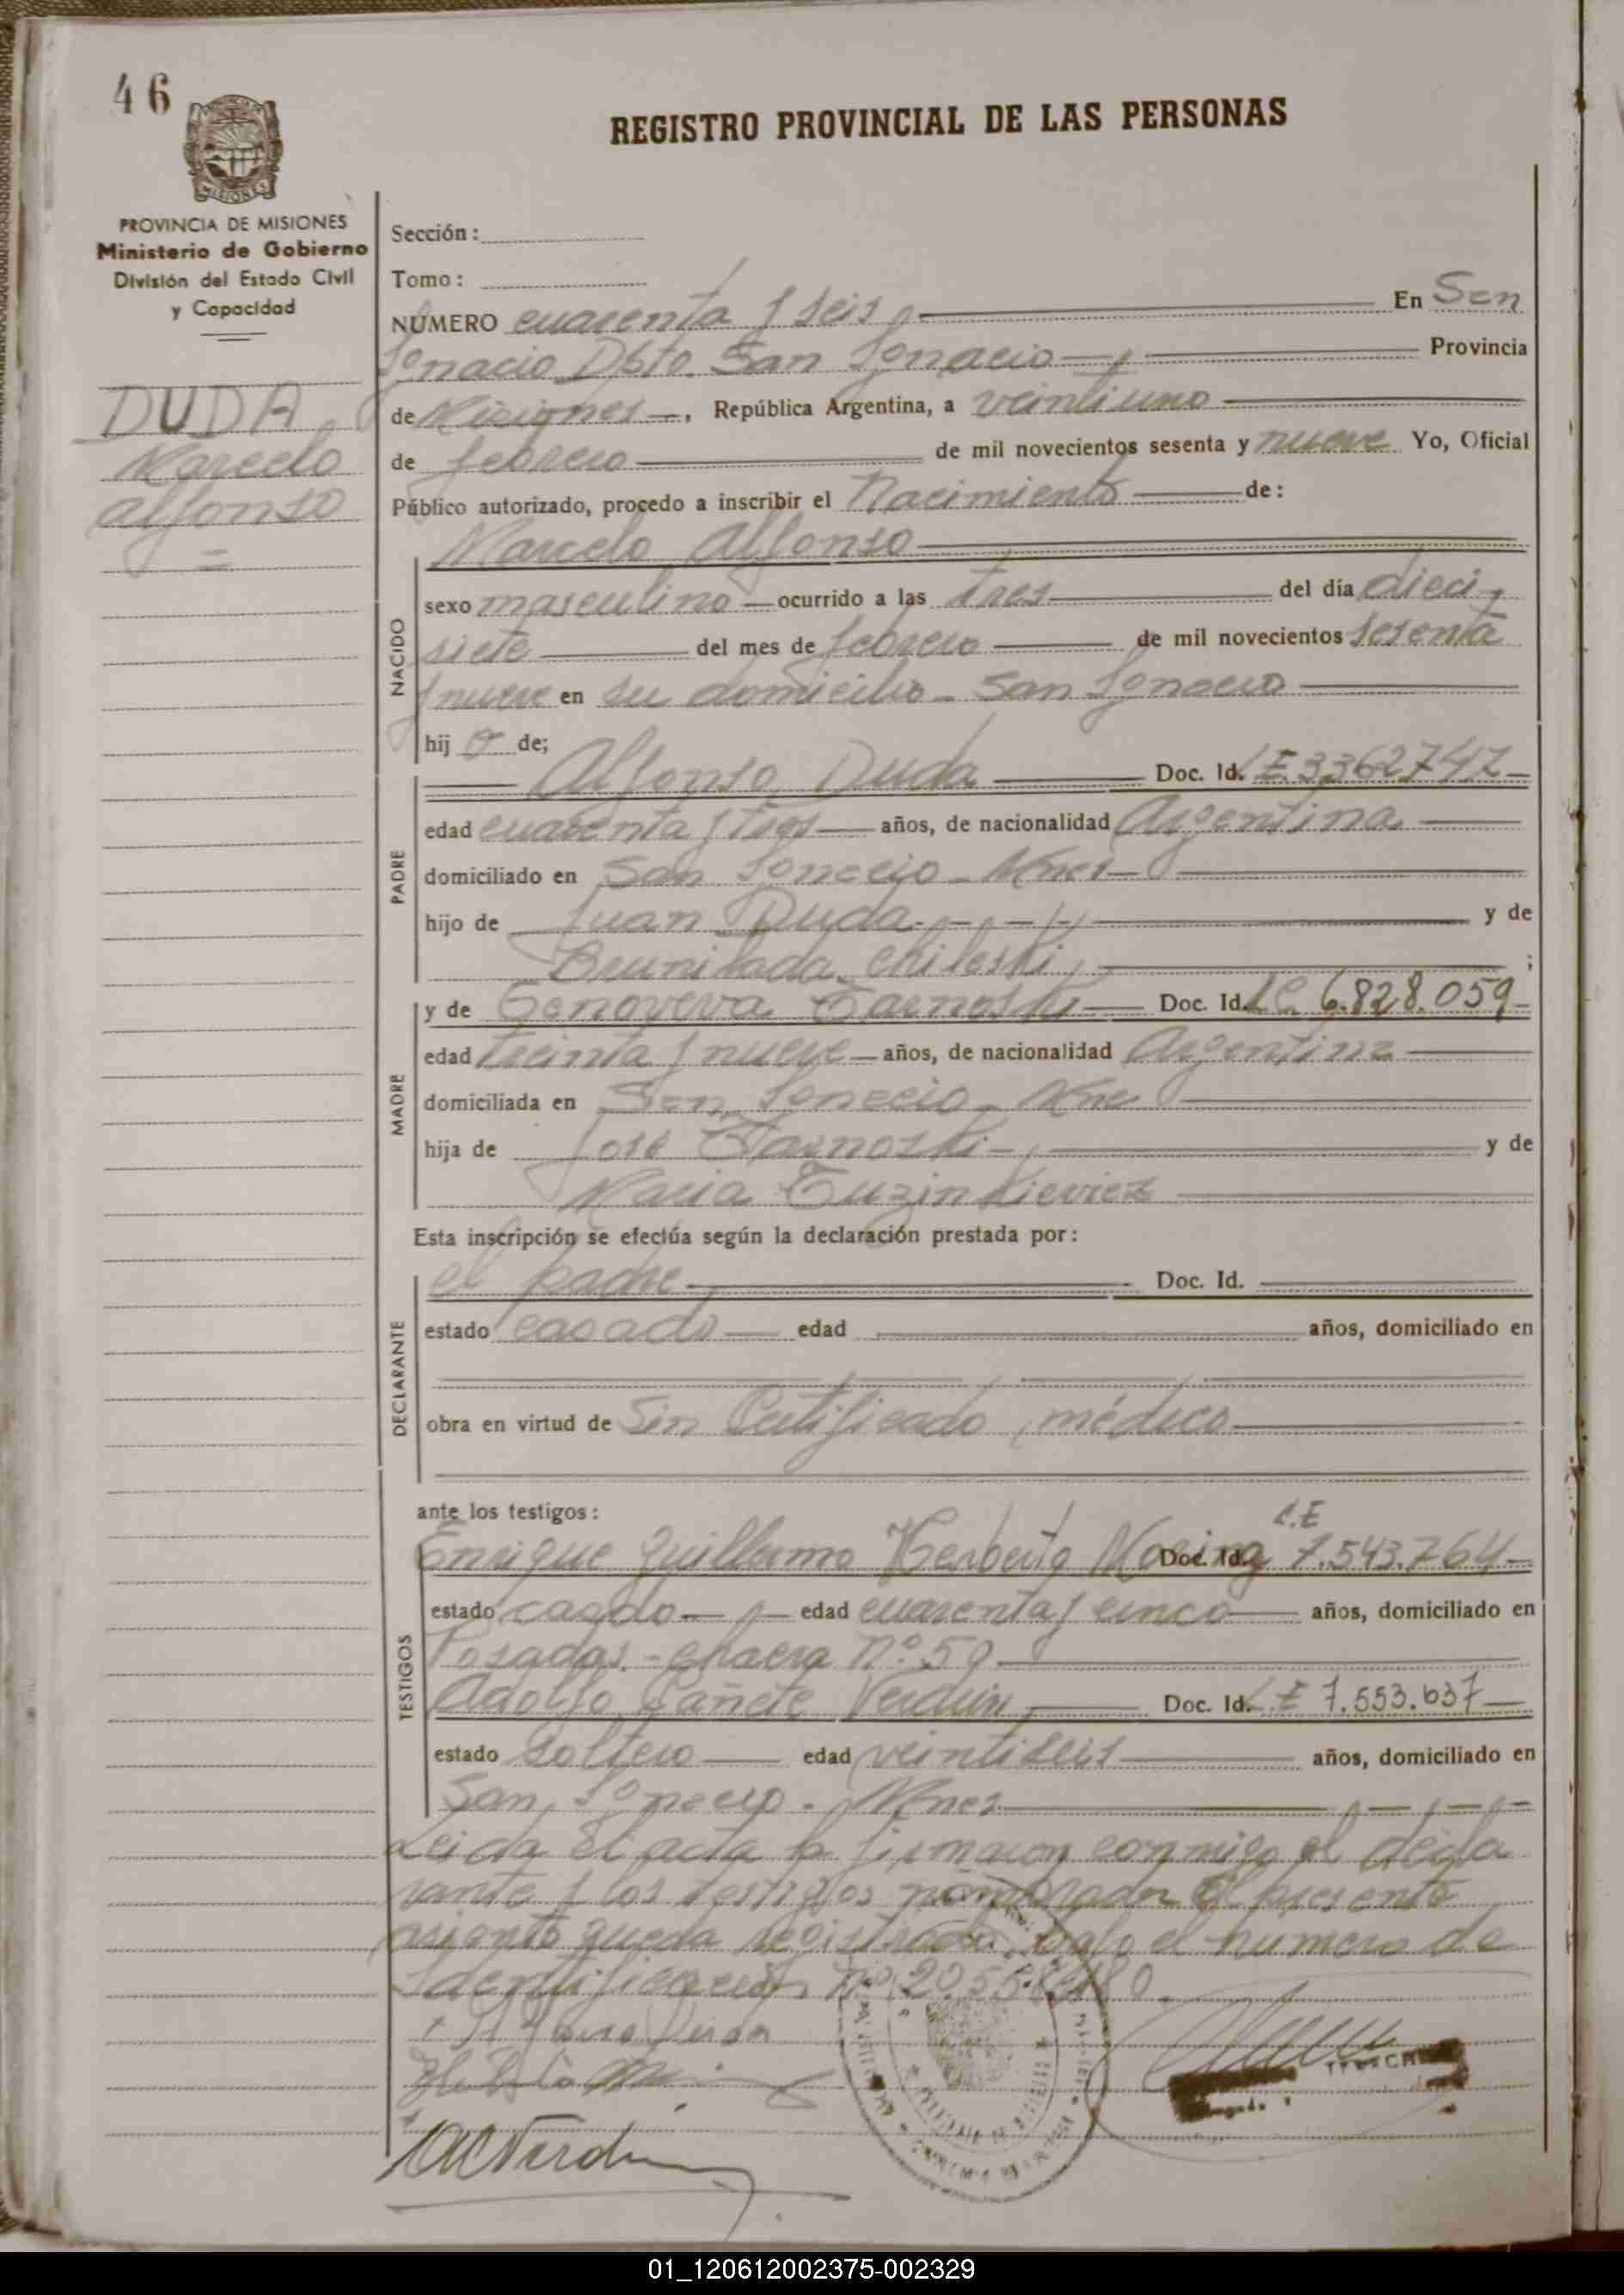 46
REGISTRO PROVINCIAL DE LAS PERSONAS
PROVINCIA DE MISIONES
Ministerio de Gobierno
División del Estado Civil
y Capacidad
DUDA
Marcelo
Alfonso
Sección:
Tomo:
NÚMERO cuarenta y seis En San
Ignacio Dpto. San Ignacio Provincia
de Misiones, República Argentina, a veintiuno
de febrero de mil novecientos sesenta y nueve Yo, Oficial
Público autorizado, procedo a inscribir el Nacimiento de:
Marcelo Alfonso
NACIDO
sexo masculino ocurrido a las tres del día dieci
siete del mes de febrero de mil novecientos sesenta
y nueve en su domicilio - San Ignacio
hij o de;
PADRE
Alfonso Duda Doc. Id. L.E. 3362747
edad cuarenta y tres años, de nacionalidad Argentina
domiciliado en San Ignacio - Mnes
hijo de Juan Duda y de
Brunilada Chileski;
MADRE
y de Genoveva Tarnoski Doc. Id. L.C. 6.828.059
edad treinta y nueve años, de nacionalidad Argentina
domiciliada en San Ignacio - Mnes
hija de José Tarnoski y de
Maria Tuzinkievicz
Esta inscripción se efectúa según la declaración prestada por:
DECLARANTE
el padre Doc. Id.
estado casado edad años, domiciliado en
obra en virtud de Sin Certificado médico
ante los testigos:
TESTIGOS
L.E
Enrique Guillermo Herberto Moring Doc. Id. 7.543.764
estado casado edad cuarenta y cinco años, domiciliado en
Posadas - chacra Nº 59
Adolfo Cañete Verdún Doc. Id. L.E 7.553.637
estado soltero edad veintiseis años, domiciliado en
San Ignacio - Mnes
Leida el acta la firmaron conmigo el decla
rante y los testigos nombrados El presente
asiento queda registrado bajo el número de
Identificación nº 20.558.
01_120612002375-002329